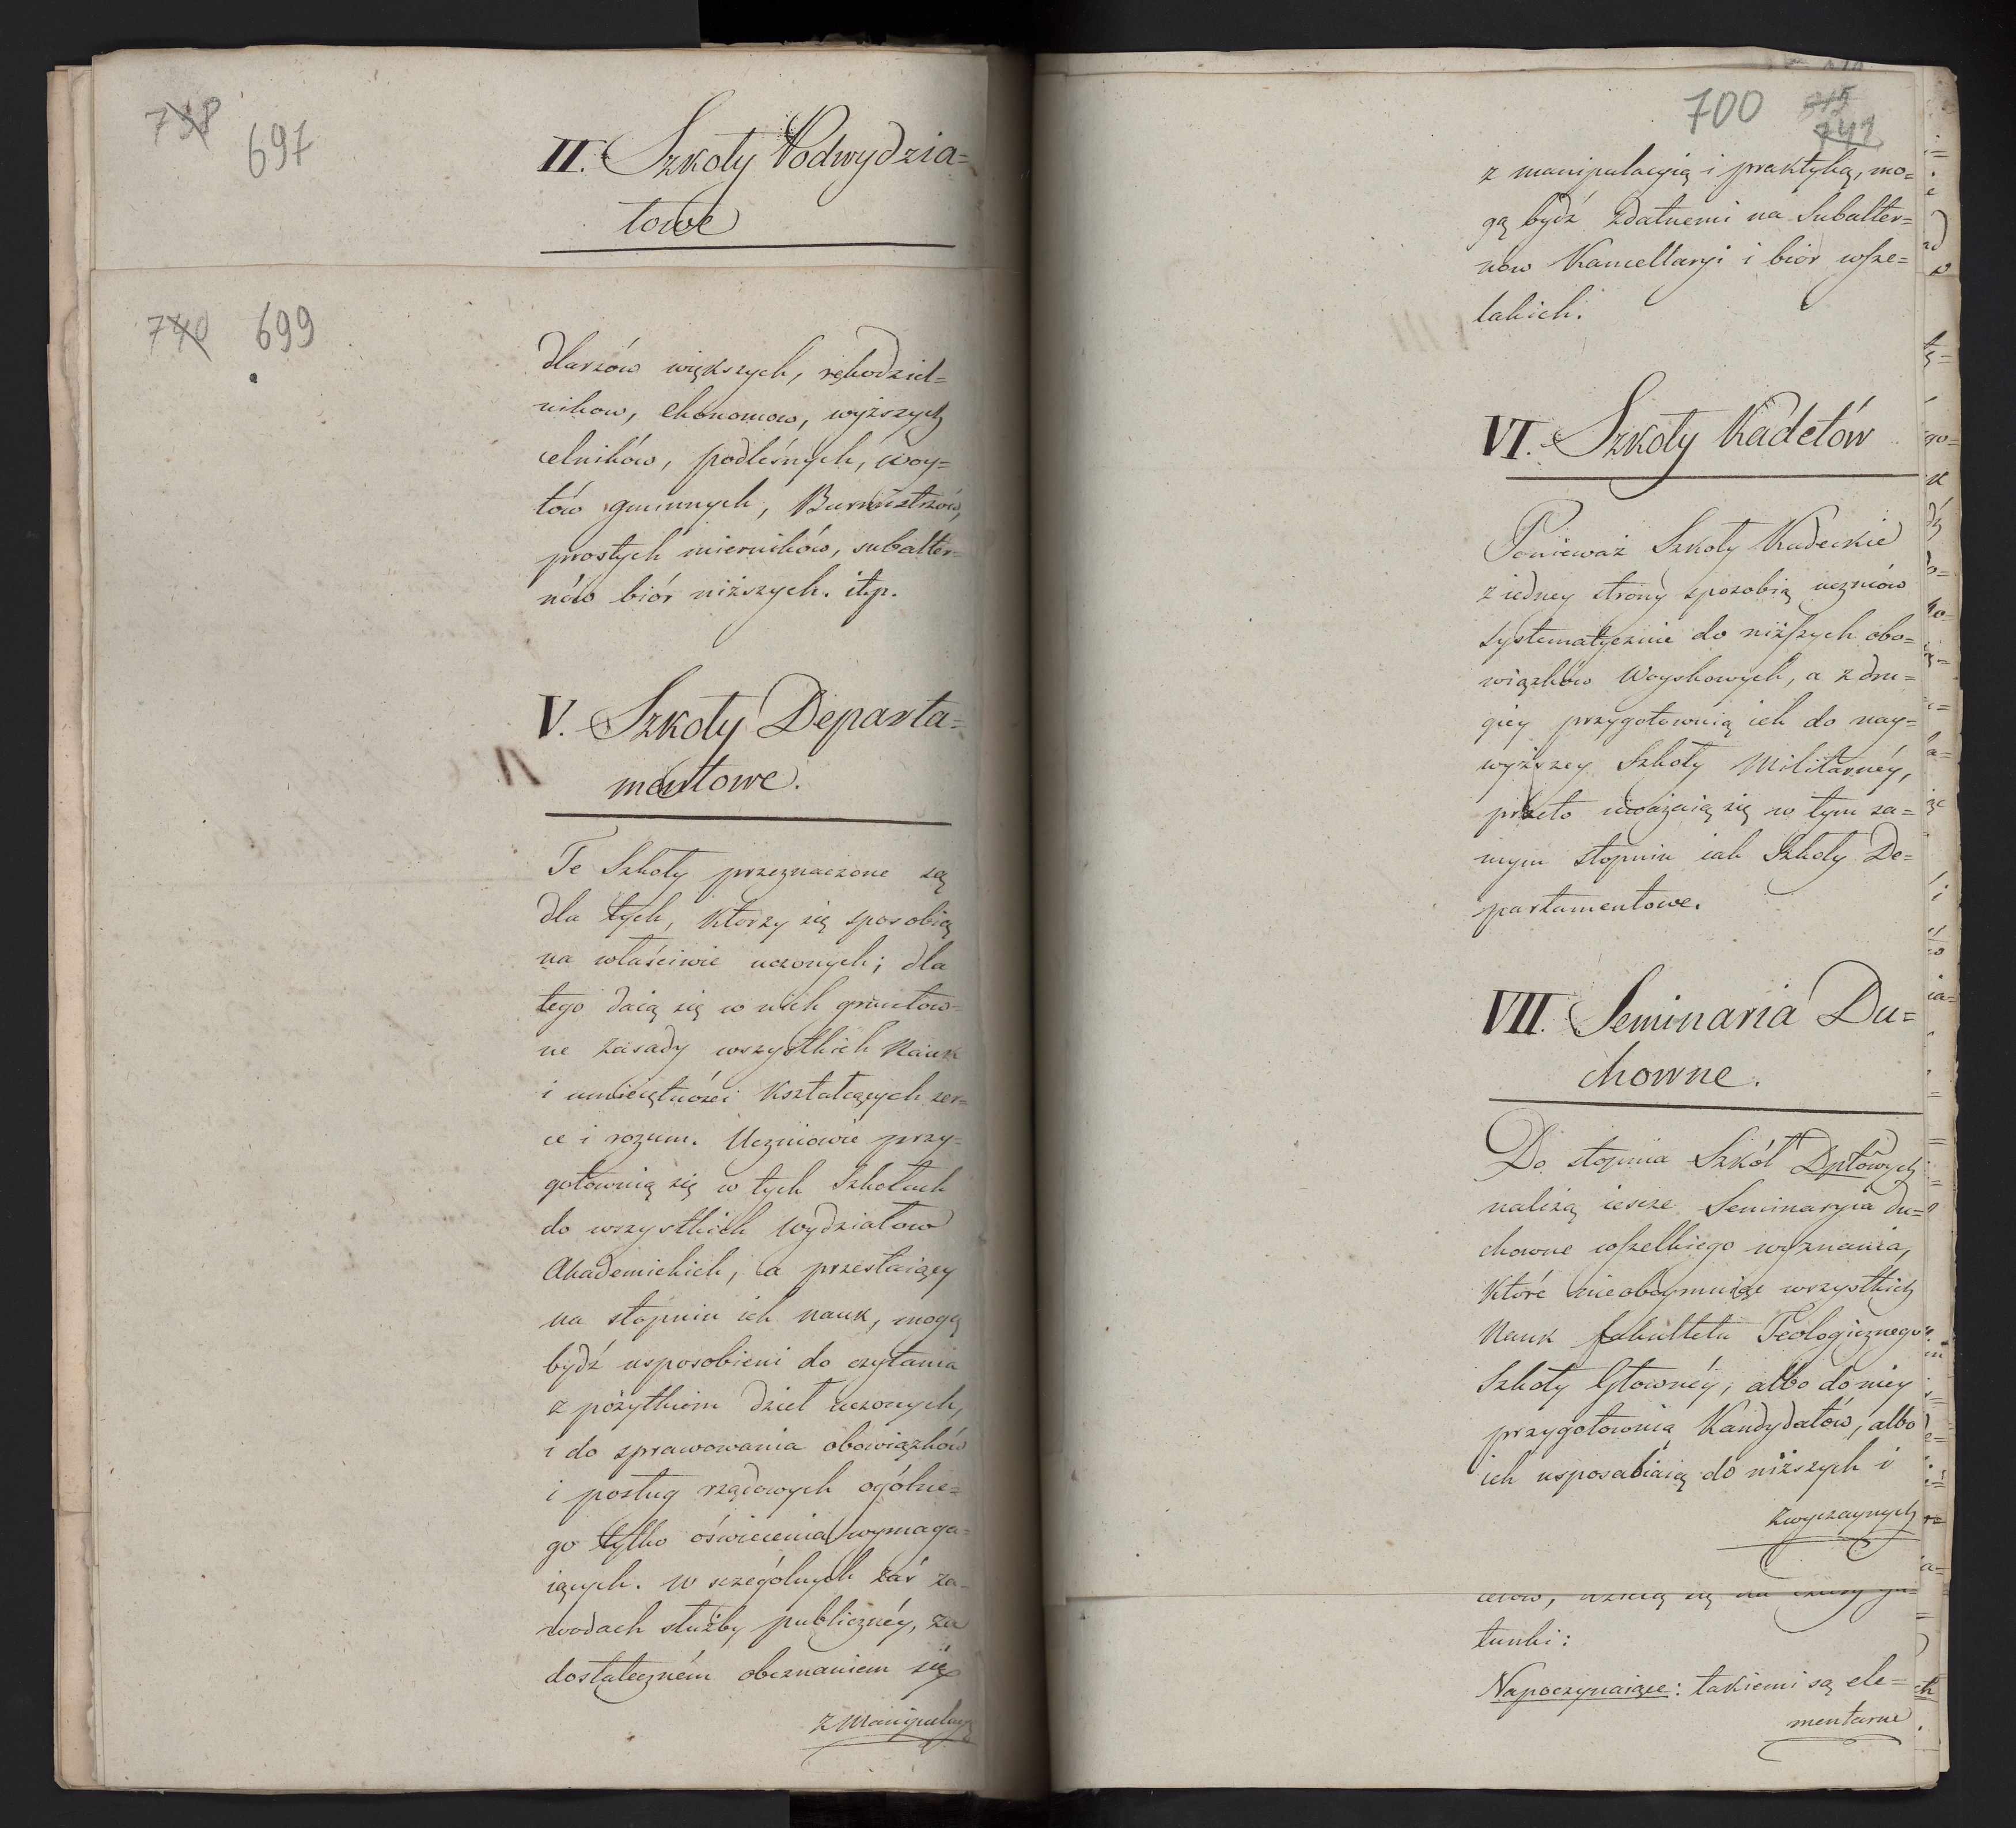 738 697
II. Szkoły Podwydzia=
łowe
740 699
dlarzów większych, rękodziel=
nikow, ekonomow, wyższych
celników, podleśnych, woy=
tów gminnych, Burmistrzów,
prostych mierników, subalter=
nów biór niższych. itp.
V. Szkoły Departa=
mentowe.
Te Szkoły przeznaczone są
dla tych, ktorzy się sposobią
na właściwie uczonych; dla
tego daią się w nich gruntow=
ne zasady wszystkich Nauk
i umieiętności kształcących ser=
ce i rozum. Uczniowie przy=
gotowuią się w tych Szkołach
do wszystkich wydziałow
Akademickich, a przestaiący
na stopniu ich nauk, mogą
bydź usposobieni do czytania
z pożytkiem dzieł uczonych,
i do sprawowania obowiązków
i posług rządowych ogólne=
go tylko oświecenia wymaga=
iących. w szczególnych zaś za=
wodach służby publiczney, za
dostateczném obeznaniem się
z manipulacyą
700 815
741
z manipulacyią i praktyką, mo=
gą bydź zdatnemi na Subalter=
now Kancellaryi i biór wsze=
lakich.
VI. Szkoły Kadetów
Ponieważ Szkoły Kadeckie
z iedney strony sposobią uczniów
systematycznie do niższych obo=
wiązków Woyskowych, a z dru=
giey przygotowuią ich do nay=
wyższey Szkoły Militarnéy,
przeto uważaią się w tym sa=
mym stopniu iak Szkoły De=
partamentowe.
VII. Seminaria Du=
chowne.
Do stopnia Szkół Dptowych
należą iescze Seminaryia du=
chowne wszelkiego wyznania,
które nieobeymuiąc wszystkich
Nauk fakultetu Teologicznego
Szkoły Głownéy, albo do niey
przygotowuią Kandydatów, albo
ich usposabiaią do niższych i
zwyczaynych
tunki:
Napoczynaiące: takiemi są ele=
mentarne